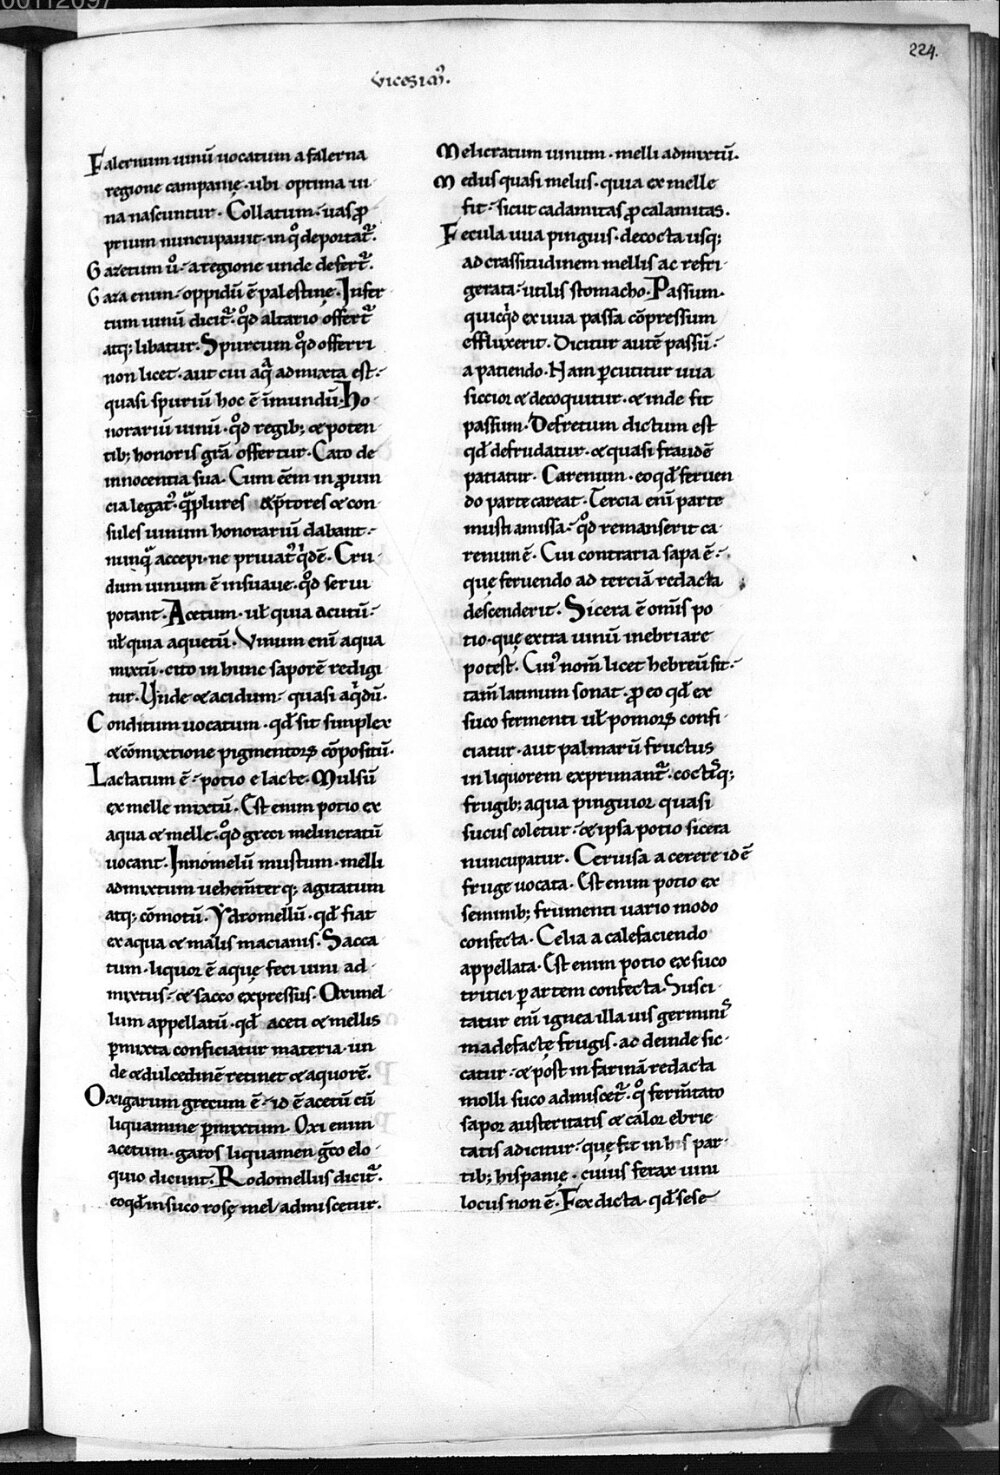 00112097
224.
vicesim᷒.
Falernum uinū uocatum a falerna
regione campanię. ubi optima ui
na nascuntur. Collatum. uas ꝓ
prium nuncupauit. in qͦ deportat᷑.
Gazetum u͛. a regione unde defert᷑.
Gaza enim oppidū ē palestinę. Infer
tum uinū dicit᷑. qͦd altario offert᷑
atq; libatur. Spurcum qͦd offerri
non licet. aut cui aqᷓ admixta est.
quasi spuriū hoc ē īmundū. Ho
norariū uinū. qͦd regib; & poten
tib; honoris grā offertur. Cato de
innocentia sua. Cum eēm in ꝓuin
cia legat᷒. qᷓplures & p̄tores & con
sules uinum honorariū dabant.
nunqᷓ accepi. ne priuat᷒ qͥdē. Cru
dum uinum ē insuaue. qͦd serui
potant. Acetum. uł quia acutū.
uł quia aquetū. Vinum eni᷒ aqua
mixtū. cito in hunc saporē redigi
tur. Unde & acidum. quasi aqͥdū.
Conditum uocatum. qđ sit simplex
& cōmixtione pigmentoꝝ cōpositū.
Lactatum ē. potio e lacte. Mulsū
ex melle mixtū. Est enim potio ex
aqua & melle. qͦd greci melincratū
uocant. Innomelū mustum. melli
admixtum uehem̄ter q; agitatum
atq; cōmotū. Ydromellū. qđ fiat
ex aqua & malis macianis. Sacca
tum. liquor ē aquę feci uini ad
mixtus. & sacco expressus. Oximel
lum appellatū. qđ aceti & mellis
ꝑmixta conficiatur materia. un
de & dulcedinē retinet & aquorē.
Oxigarum grecum ē. id ē acetū cū
liquamine ꝑmixtum. Oxi enim
acetum. garos liquamen gͨo elo
quio dicunt. Rodomellus dicit᷑.
eo qđ in suco rosę mel admiscetur.
Melicratum uinum. melli admixtū.
Medus quasi melus. quia ex melle
fit. sicut cadamitas ꝓ calamitas.
Fecula uua pinguis. decocta usq;
ad crassitudinem mellis ac refri
gerata. utilis stomacho. Passum.
quicqͥd ex uua passa cōpressum
effluxerit. Dicitur autē passū.
a patiendo. Nam ꝑcutitur uua
siccior & decoquitur. & inde fit
passum. Defretum dictum est
qđ defrudatur. & quasi fraudē
patiatur. Carenum. eo qđ feruen
do parte careat. Tercia eni᷒ parte
musti amissa. qͦd remanserit ca
renum ē. Cui contraria sapa ē.
quę feruendo ad terciā redacta
descenderit. Sicera ē om̄is po
tio. quę extra uinū inebriare
potest. Cui᷒ nom̄ licet hebreū sit.
tam̄ latinum sonat. ꝓ eo qđ ex
suco fermenti uł pomoꝝ confi
ciatur. aut palmarū fructus
in liquorem exprimant᷑. coctisq;
frugib; aqua pinguior quasi
sucus coletur. & ipsa potio sicera
nuncupatur. Ceruisa a cerere id ē
fruge uocata. Est enim potio ex
seminib; frumenti uario modo
confecta. Celia a calefaciendo
appellata. Est enim potio ex suco
tritici ꝑ artem confecta. Susci
tatur eni᷒ ignea illa uis germinis
madefactę frugis. ac deinde sic
catur. & post in farinā redacta
molli suco admiscet᷑. qͦ ferm̄tato
sapor austeritatis & calor ebrie
tatis adicitur. quę fit in his par
tib; hispanię. cuius ferax uini
locus non ē. Fex dicta. qđ sese